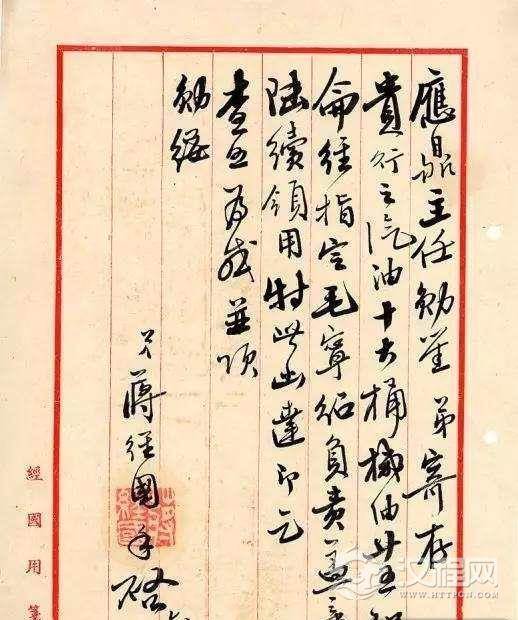 應鼎主任勛鑒 弟寄存
貴行之汽油十大桶機油廿五
侖經指定毛寧紹負責並
陸續領用特此函達即乞
查照為感並頌
勛綏
弟
蔣經國手啓
經國用箋
汉程网
WWW.HTTPCN.COM